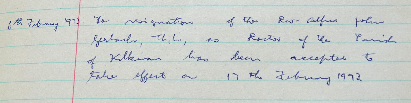 8th February 1992 The resignation of the Rev. Alfred John
Gerbach, Th.L., as Rector of the Parish
of Kilkivan has been accepted to
take effect on 17th February 1992